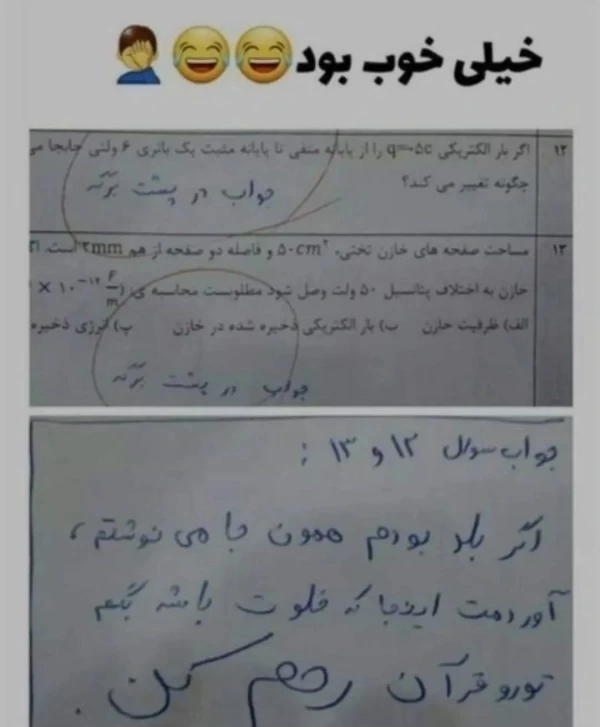 خیلی خوب بود😂😂🤦‍♂️
۱۲ اگر بار الکتریکی q=-۵c را از پایانه منفی تا پایانه مثبت یک باتری ۶ ولتی جابجا می
چگونه تغییر می کند؟
جواب در پشت برگه
۱۳ مساحت صفحه های خازن تختی، ۵۰cm² و فاصله دو صفحه از هم ۲mm است.
خازن به اختلاف پتانسیل ۵۰ ولت وصل شود مطلوبست محاسبه ی: × ۱۰⁻¹² F/m)
الف) ظرفیت خازن ب) بار الکتریکی ذخیره شده در خازن پ) انرژی ذخیره
جواب در پشت برگه
جواب سوال ۱۲ و ۱۳ :
اگر بلد بودم همون جا می نوشتم،
آوردمت اینجا که خلوت باشه بگم
تورو قرآن رحم کن.